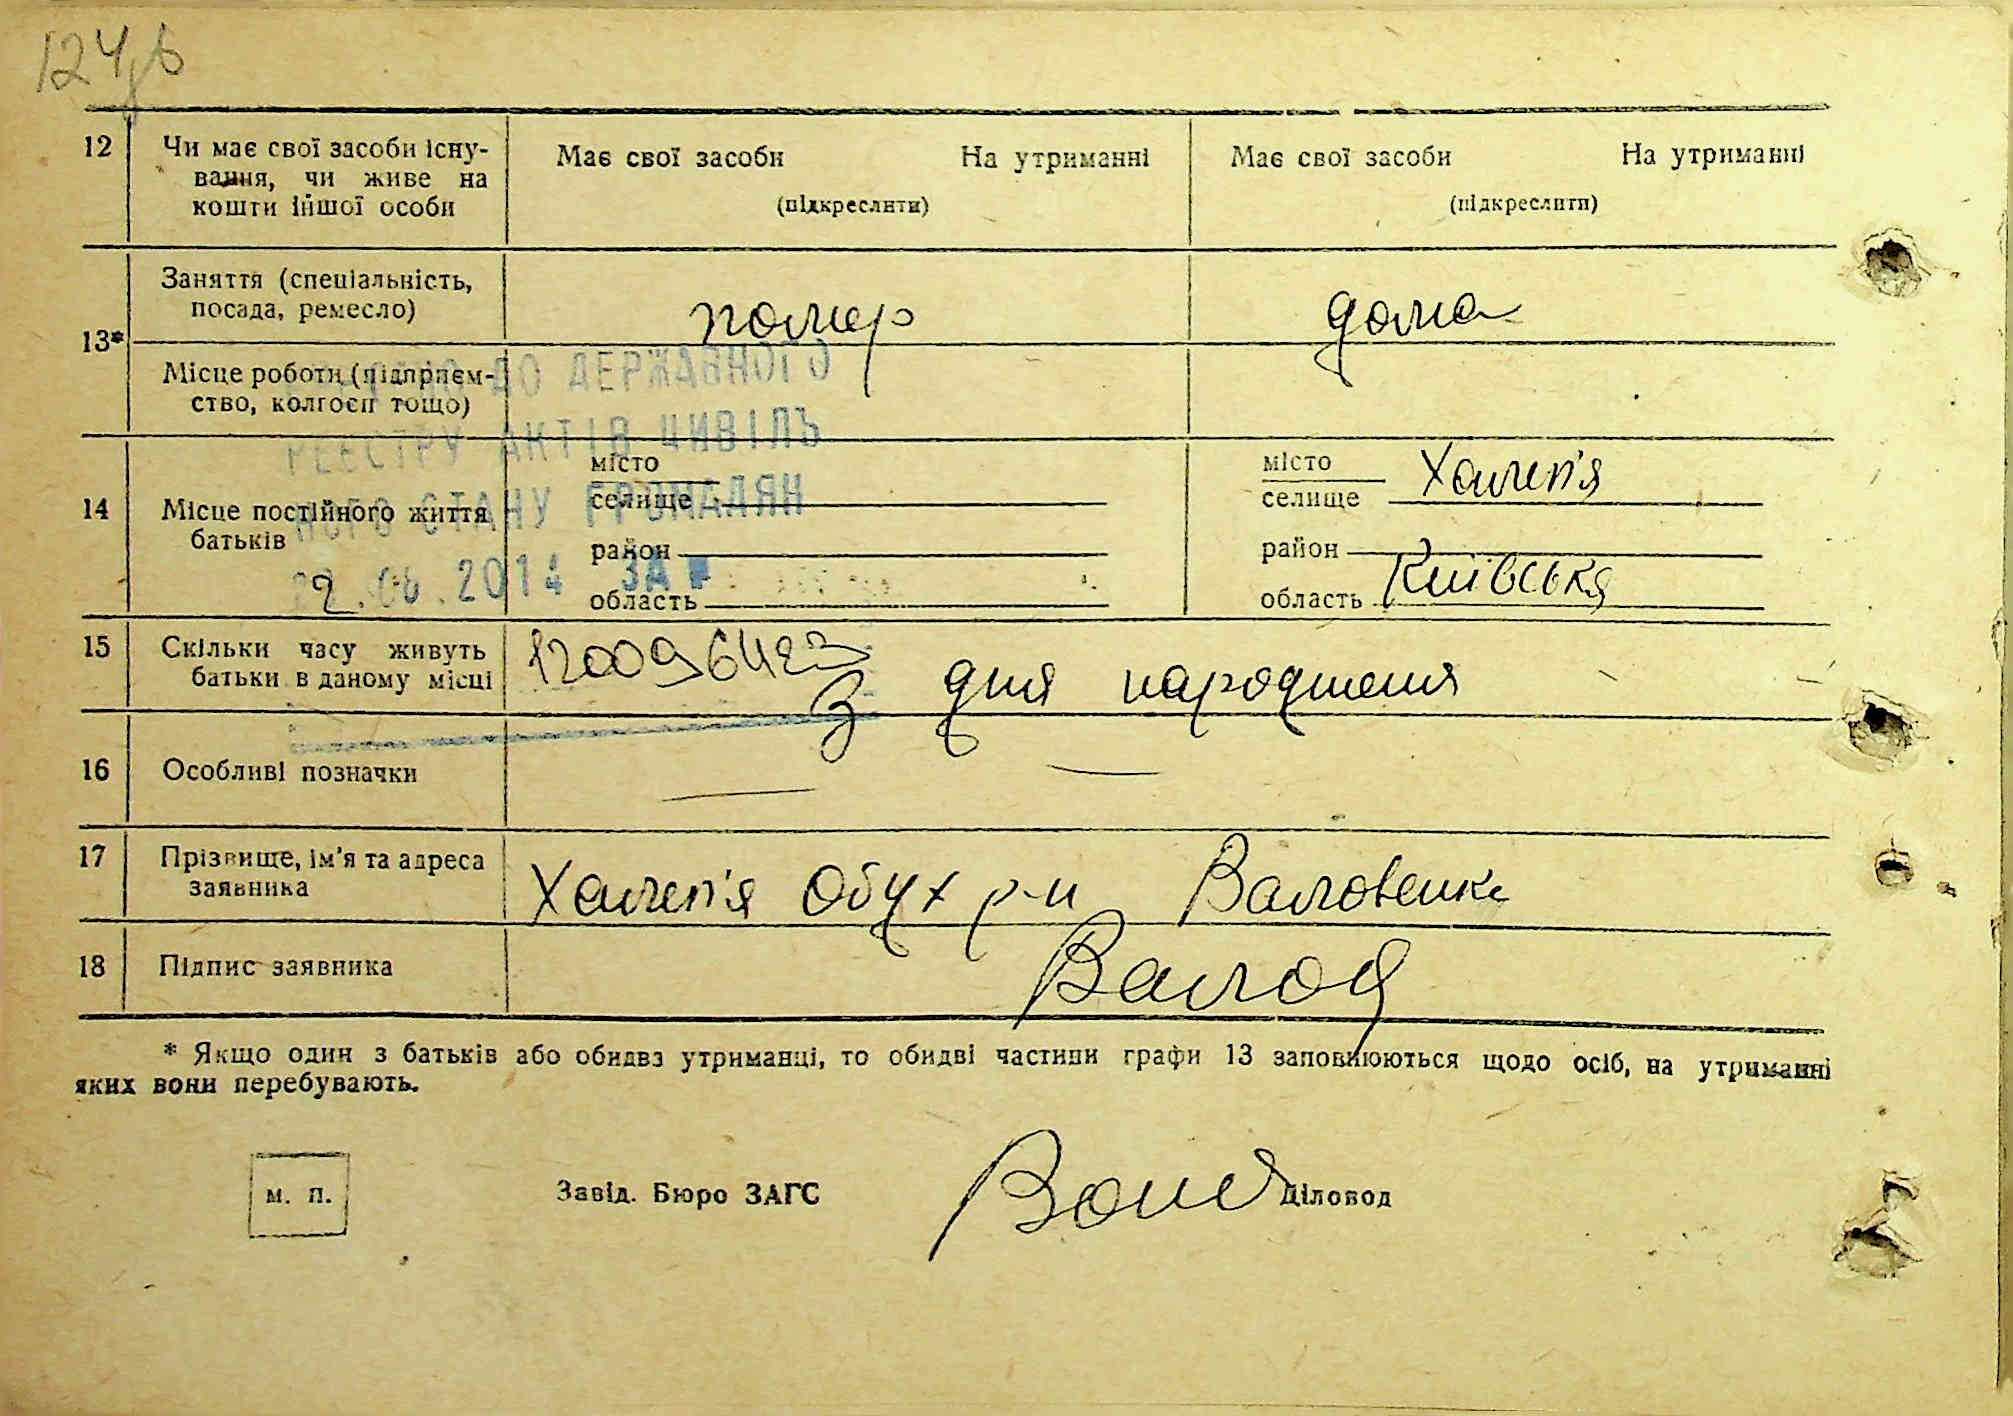 12 Чи має свої засоби існу- Має свої засоби На утриманні Має свої засоби На утриманні
вання, чи живе на
кошти іншої особи (підкреслити) (підкреслити)
Заняття (спеціальність,
посада, ремесло) помер дома
13*
Місце роботи (підприєм-
ство, колгосп тощо)
ДО ДЕРЖАВНОГО
РЕЄСТРУ АКТІВ ЦИВІЛЬ
НОГО СТАНУ ГРОМАДЯН
2014 ЗА №
14 Місце постійного життя
батьків
місто
селище
район
область
місто
селище Халеп'я
район
область Київська
15 Скільки часу живуть
батьки в даному місці
З дня народження
16 Особливі позначки — —
17 Прізвище, ім'я та адреса
заявника
Халеп'я Обух р-н
18 Підпис заявника
* Якщо один з батьків або обидвз утриманці, то обидві частини графи 13 заповнюються щодо осіб, на утриманні
яких вони перебувають.
м. п. Завід. Бюро ЗАГС Діловод